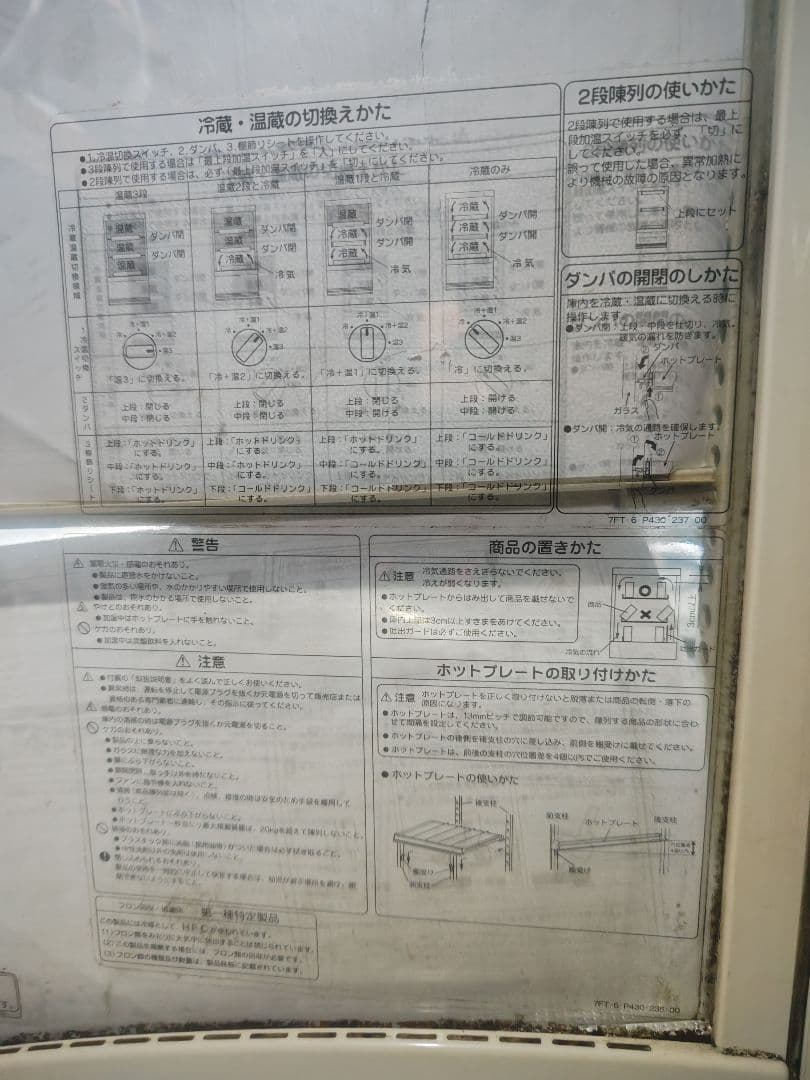 冷蔵・温蔵の切換えかた
●1.冷温切換スイッチ、2.ダンパ、3.棚飾りシートを操作してください。
●3段陳列で使用する場合は「最上段加温スイッチ」を「入」にしてください。
●2段陳列で使用する場合は、必ず「最上段加温スイッチ」を「切」にしてください。
温蔵3段
温蔵2段と冷蔵
温蔵1段と冷蔵
冷蔵のみ
冷蔵温蔵切換領域
温蔵
温蔵
温蔵
ダンパ閉
ダンパ閉
温蔵
温蔵
冷蔵
ダンパ閉
ダンパ閉
冷気
温蔵
冷蔵
冷蔵
ダンパ閉
ダンパ開
冷気
冷蔵
冷蔵
冷蔵
ダンパ開
ダンパ開
冷気
1 冷温切換スイッチ
冷 冷+温1 冷+温2 温3
冷 冷+温1 冷+温2 温3
冷 冷+温1 冷+温2 温3
冷 冷+温1 冷+温2 温3
「温3」に切換える。
「冷+温2」に切換える。
「冷+温1」に切換える。
「冷」に切換える。
2 ダンパ
上段:閉じる
中段:閉じる
上段:閉じる
中段:閉じる
上段:閉じる
中段:開ける
上段:開ける
中段:開ける
3 棚飾りシート
上段:「ホットドリンク」にする。
中段:「ホットドリンク」にする。
下段:「ホットドリンク」にする。
上段:「ホットドリンク」にする。
中段:「ホットドリンク」にする。
下段:「コールドドリンク」にする。
上段:「ホットドリンク」にする。
中段:「コールドドリンク」にする。
下段:「コールドドリンク」にする。
上段:「コールドドリンク」にする。
中段:「コールドドリンク」にする。
下段:「コールドドリンク」にする。
2段陳列の使いかた
2段陳列で使用する場合は、最上
段加温スイッチを必ず、「切」に
してください。
誤って使用した場合、異常加熱に
より機械の故障の原因となります。
上段にセット
ダンパの開閉のしかた
庫内を冷蔵・温蔵に切換える時に
操作します。
●ダンパ閉:上段・中段を仕切り、冷気、
暖気の漏れを防ぎます。
② ダンパ
ホットプレート
①
ガラス
●ダンパ開:冷気の通路を確保します。
① ホットプレート
②
ダンパ
7FT-6 P430 237 00
⚠ 警告
漏電火災・感電のおそれあり。
●製品に直接水をかけないこと。
●湿気の多い場所や、水のかかりやすい場所で使用しないこと。
●製品は、雨水のかかる場所で使用しないこと。
やけどのおそれあり。
●加温中はホットプレートに手を触れないこと。
ケガのおそれあり。
●加温中は炭酸飲料を入れないこと。
⚠ 注意
●付属の「取扱説明書」をよく読んで正しくお使いください。
●異常時は、運転を停止して電源プラグを抜くか元電源を切って販売店または
資格のある専門業者に連絡し、その指示に従ってください。
感電のおそれあり。
庫内の清掃の時は電源プラグを抜くか元電源を切ること。
ケガのおそれあり。
●製品の上に乗らないこと。
●ガラスに無理な力を加えないこと。
●扉にぶら下がらないこと。
●ファンに指や棒を入れないこと。
●ホットプレートにぶら下がらないこと。
●ホットプレート一枚当たり最大積載質量は、20kgを超えて陳列しないこと。
閉じ込められるおそれあり。
第一種特定製品
この製品には冷媒として、HFCが使われています。
(1)フロン類をみだりに大気中に放出することは禁じられています。
(2)この製品を廃棄する場合には、フロン類の回収が必要です。
(3)フロン類の種類及び数量は、製品銘板に記載されています。
商品の置きかた
⚠注意
冷気通路をさえぎらないでください。
冷えが弱くなります。
●ホットプレートからはみ出して商品を載せないで
ください。
●庫内上部は3cm以上すきまをあけてください。
●吐出ガードは必ずご使用ください。
商品
冷気の流れ
吐出ガード
3cm以上
ホットプレートの取り付けかた
⚠注意
ホットプレートを正しく取り付けないと脱落または商品の転倒・落下の
原因になります。
●ホットプレートは、13mmピッチで調節可能ですので、陳列する商品の形状に合わ
せて間隔を設定してください。
●ホットプレートの後側を後支柱の穴に差し込み、前側を棚受けに載せてください。
●ホットプレートは、前後の支柱の穴位置差を4個以内でご使用ください。
●ホットプレートの使いかた
後支柱
棚受け
前支柱
前支柱
ホットプレート
後支柱
棚受け
穴位置差
4個以内
7FT-6-P430-236-00
す。